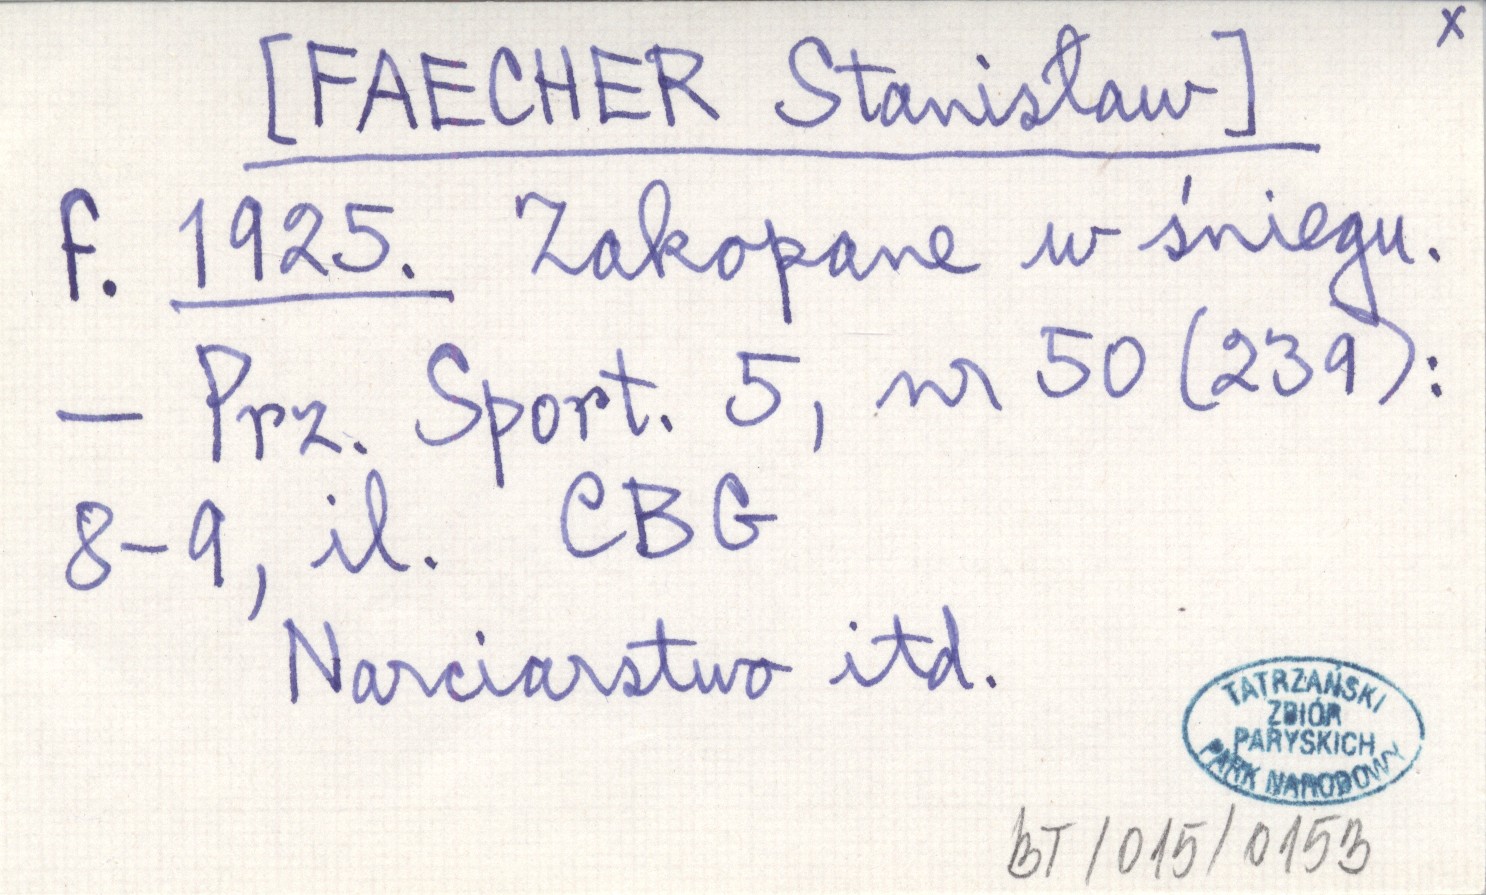 x
[FAECHER Stanisław]
f. 1925. Zakopane w śniegu.
— Prz. Sport. 5, nr 50 (239):
8-9, il. CBG
Narciarstwo itd.
TATRZAŃSKI
ZBIÓR
PARYSKICH
PARK NARODOWY
BT/015/0153